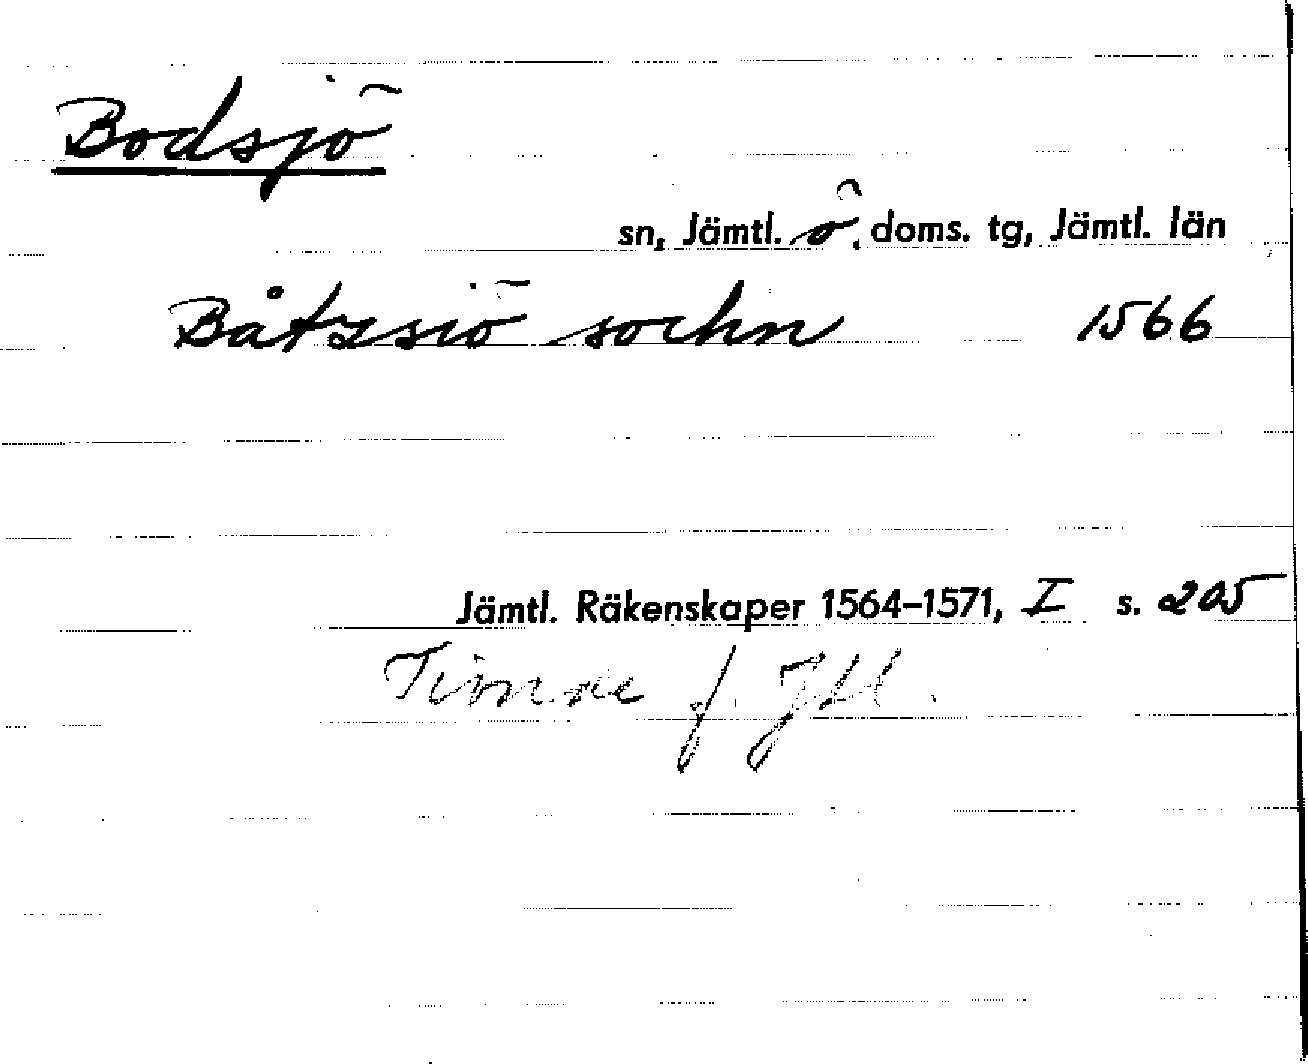 Bodsjö
sn, Jämtl. ö. doms. tg, Jämtl. län
Båtzsiö sochn 1566
Jämtl. Räkenskaper 1564–1571, I s. 205
f. Jtl.